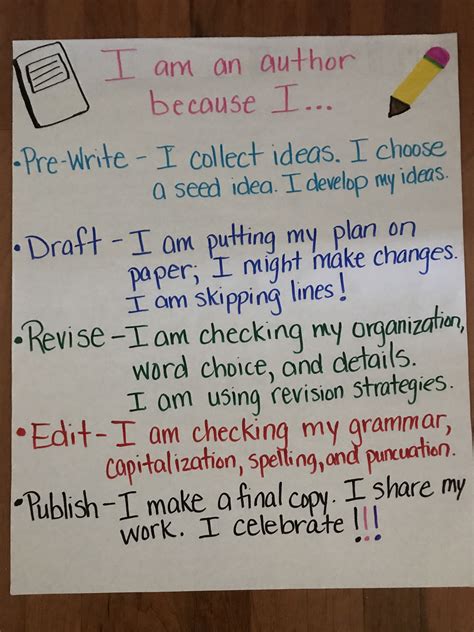 I am an author
because I...
•Pre-Write - I collect ideas. I choose
a seed idea. I develop my ideas.
•Draft - I am putting my plan on
paper; I might make changes.
I am skipping lines!
•Revise - I am checking my organization,
word choice, and details.
I am using revision strategies.
•Edit - I am checking my grammar,
capitalization, spelling, and puncuation.
•Publish - I make a final copy. I share my
work. I celebrate !!!